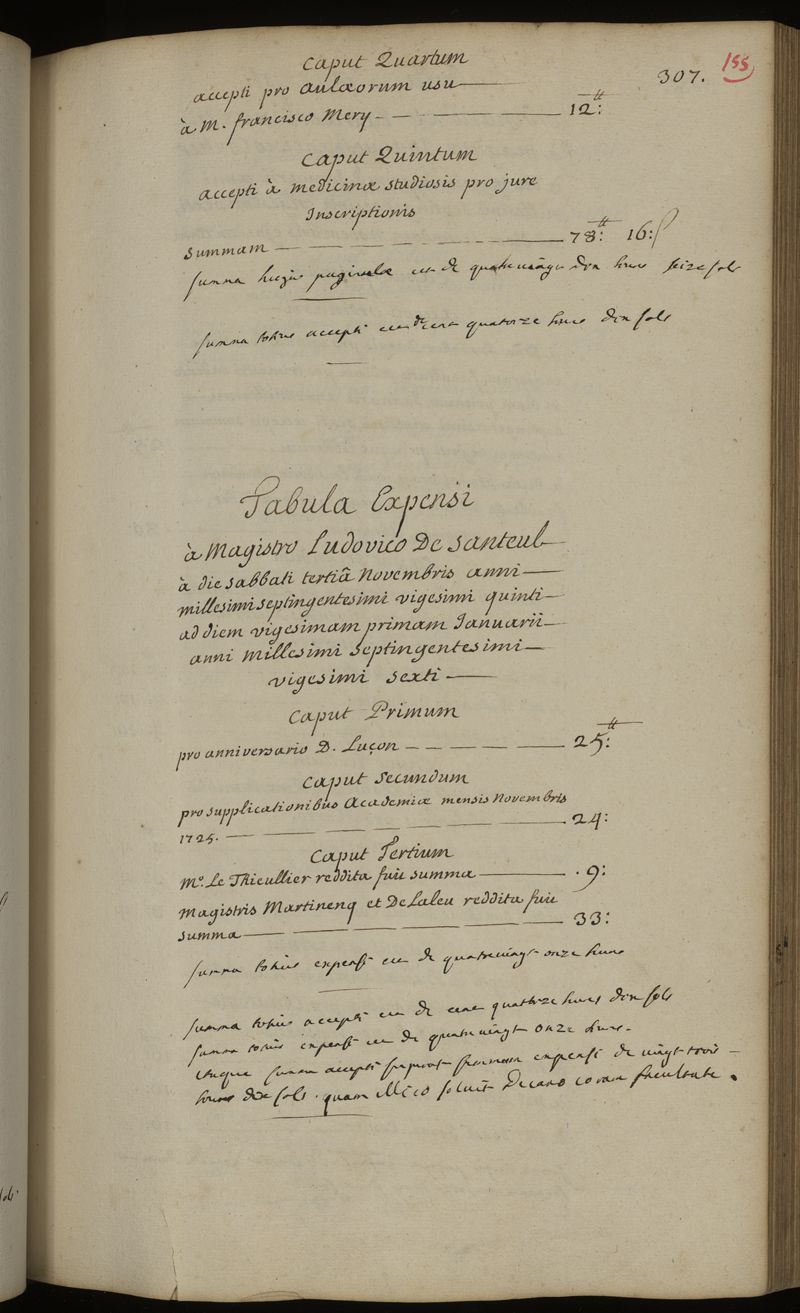 307. 155
Caput Quartum
accepti pro aulæorum usu
à M. francisco Mery 12:tt
Caput Quintum
accepti à medicinæ studiosis pro jure
Inscriptionis
summam 78:tt 16:ſ
summa hujus paginulæ est de quatrevingt dix livres seize sols
summa totius accepti est de cent quatorze livres dix sols
Tabula Expensi
à Magistro Ludovico De Santeul
à die sabbati tertiâ Novembris anni
millesimi septingentesimi vigesimi quinti
ad diem vigesimam primam Januarii
anni millesimi septingentesimi
vigesimi sexti
Caput Primum
pro anniversario D. Luçon 25:tt
Caput Secundum
pro supplicationibus Academiæ mensis Novembris
1725. 24:
Caput Tertium
Mo. Le Thieullier reddita fuit summa 9:
Magistris Martinenq et De Laleu reddita fuit
summa 33:
summa totius expensi est de quatrevingt onze livres
summa totius accepti est de cent quatorze livres dix sols
summa totius expensi est de quatrevingt onze livres.
itaque summa accepti superat summam expensi de vingt trois
livres dix sols. quam illico solvit Decano coram facultate.